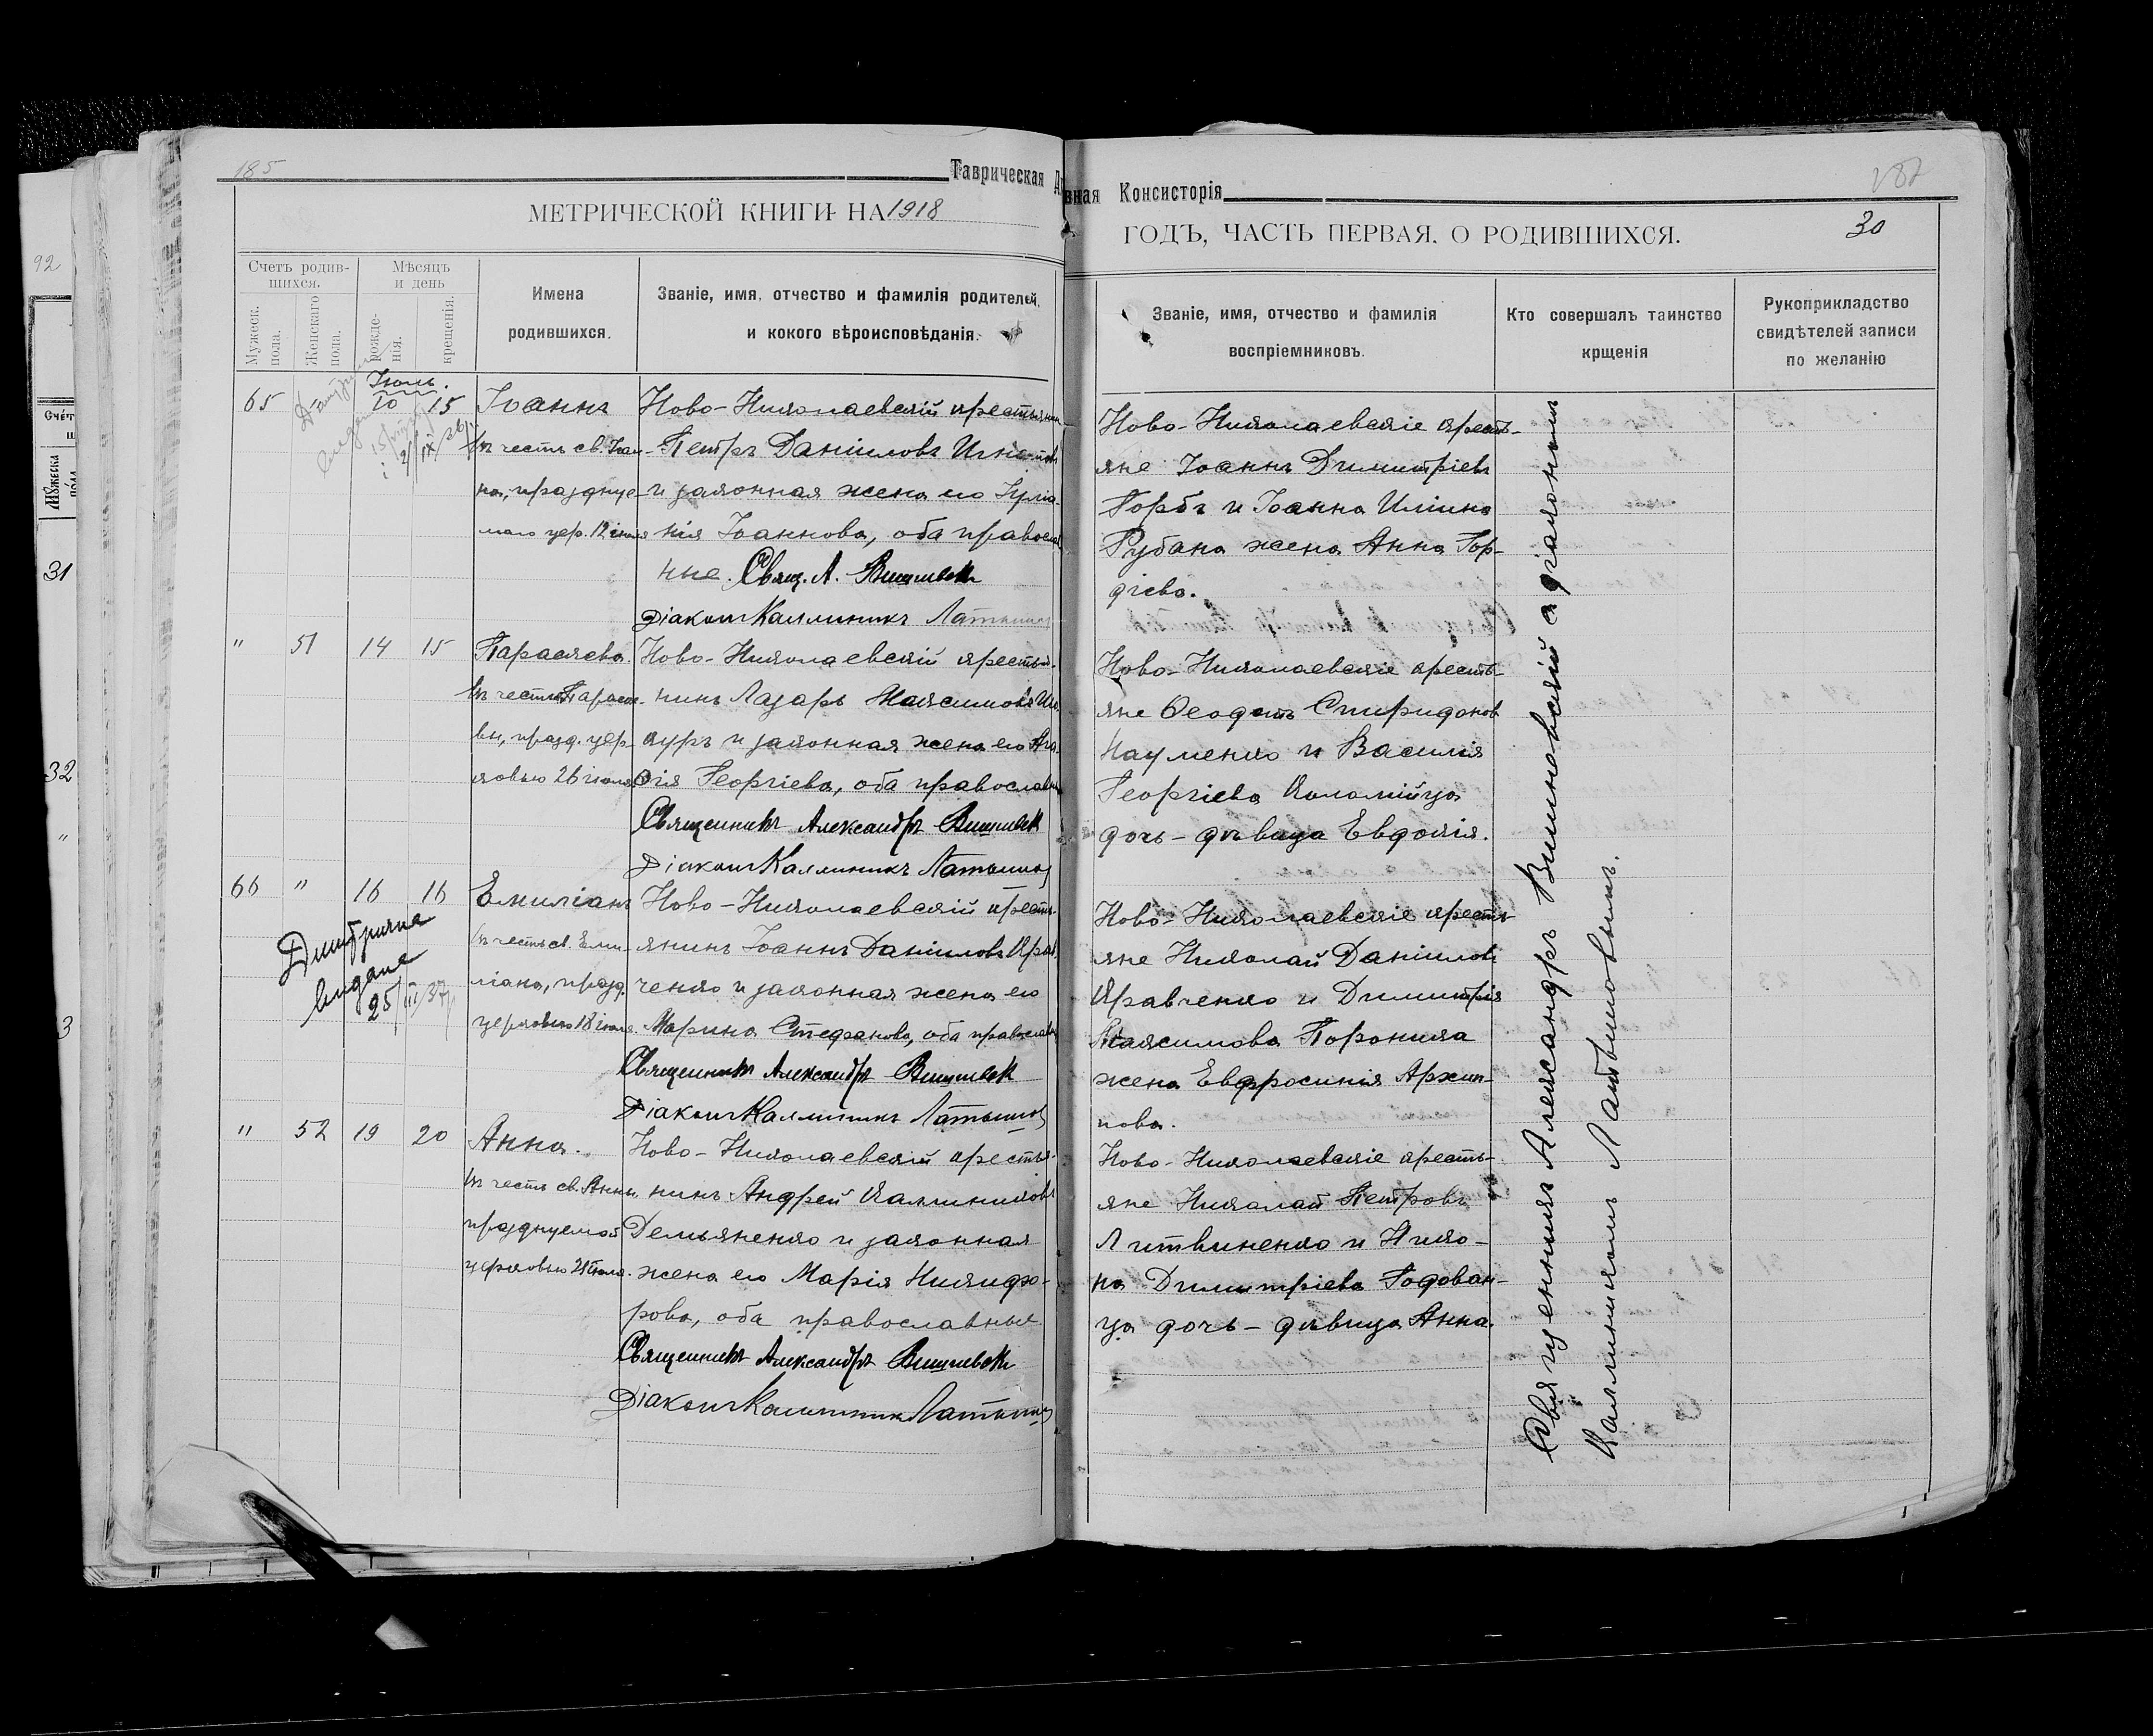 185
Таврическая
вная Консисторія
МЕТРИЧЕСКОЙ КНИГИ НА 1918
ГОДЪ, ЧАСТЬ ПЕРВАЯ. О РОДИВШИХСЯ.
30
Счетъ родив-
шихся.
Мужеск.
пола.
Женскаго
пола.
Мѣсяцъ
и день
рожде-
нія.
крещенія.
Имена
родившихся.
Званіе, имя, отчество и фамилія родителей,
и кокого вѣроисповѣданія.
Званіе, имя, отчество и фамилія
воспріемниковъ.
Кто совершалъ таинство
крщенія
Рукоприкладство
свидѣтелей записи
по желанію
Іюль.
65 10 15
Іоаннъ
въ честь св. Іоан-
на, праздңуе-
маго цер. 12 іюля
Ново-Николаевскій крестьянин
Петръ Даніиловъ
и законная жена его Іуліа-
нія Іоаннова, оба православ
ные. Свящ. А. Вишневск
Діаконъ Каллиникъ Латышев
Ново-Николаевскіе кресть-
яне Іоаннъ Димитріевъ
Горбъ и Іоанна Иліина
Рубана жена Анна Гор-
діева.
" 51 14 15
Параскева.
въ честь Параске-
вы, празд. цер-
ковью 26 іюля
Ново-Николаевскій крестья-
нинъ Лазарь Максимовъ
и законная жена его Ага-
ѳія Георгіева, оба православн
Священникъ Александръ Вишневск
Діаконъ Каллиникъ Латышов
Ново-Николаевскіе кресть-
яне Ѳеодотъ Спиридонов
Науменко и Василія
Георгіева Коломійца
дочь - дѣвица Евдокія.
66 " 16 16
Дмитрияне
видане
25/III/37
Емиліанъ
въ честь св. Еми-
ліана, празд.
церковью 18 іюля
Ново-Николаевскій кресть-
янинъ Іоаннъ Даніиловъ Крав
ченко и законная жена его
Марина Стефанова, оба православн
Священникъ Александръ Вишневск
Діаконъ Каллиникъ Латышов
Ново-Николаевскіе кресть-
яне Николай Даніилов
Кравченко и Димитрія
Максимова
жена Евфросинія Архип-
пова.
" 52 19 20
Анна.
въ честь св. Анны
празднуемой
церковью 25 іюля.
Ново-Николаевскій крестья-
нинъ Андрей Каллиниковъ
Демьяненко и законная
жена его Марія Никифо-
рова, оба православные
Священникъ Александръ Вишневск
Діаконъ Каллиникъ Латышов
Ново-Николаевскіе кресть-
яне Николай Петровъ
Литвиненко и Нико-
на Димитріева Годован-
ца дочь - дѣвица Анна.
Священникъ Александръ Вишневскій с діакономъ
Каллиникомъ Латышовымъ.
92
31
32
"
3